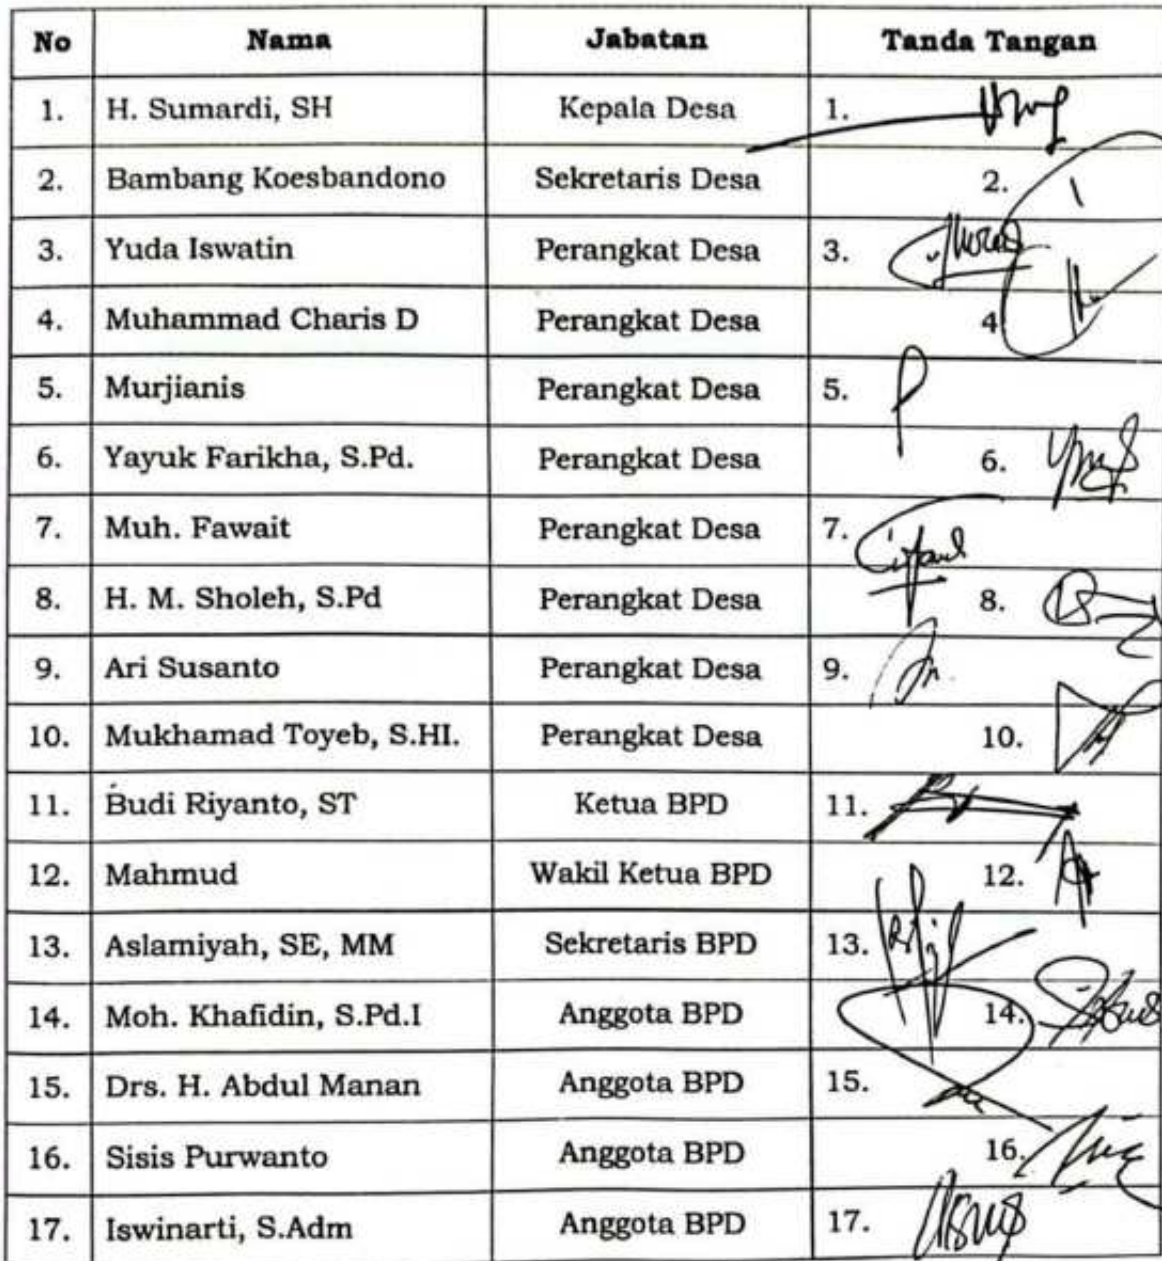 No Nama Jabatan Tanda Tangan
1. H. Sumardi, SH Kepala Desa 1.
2. Bambang Koesbandono Sekretaris Desa 2.
3. Yuda Iswatin Perangkat Desa 3.
4. Muhammad Charis D Perangkat Desa 4
5. Murjianis Perangkat Desa 5.
6. Yayuk Farikha, S.Pd. Perangkat Desa 6.
7. Muh. Fawait Perangkat Desa 7.
8. H. M. Sholeh, S.Pd Perangkat Desa 8.
9. Ari Susanto Perangkat Desa 9.
10. Mukhamad Toyeb, S.HI. Perangkat Desa 10.
11. Budi Riyanto, ST Ketua BPD 11.
12. Mahmud Wakil Ketua BPD 12.
13. Aslamiyah, SE, MM Sekretaris BPD 13.
14. Moh. Khafidin, S.Pd.I Anggota BPD 14.
15. Drs. H. Abdul Manan Anggota BPD 15.
16. Sisis Purwanto Anggota BPD 16.
17. Iswinarti, S.Adm Anggota BPD 17.